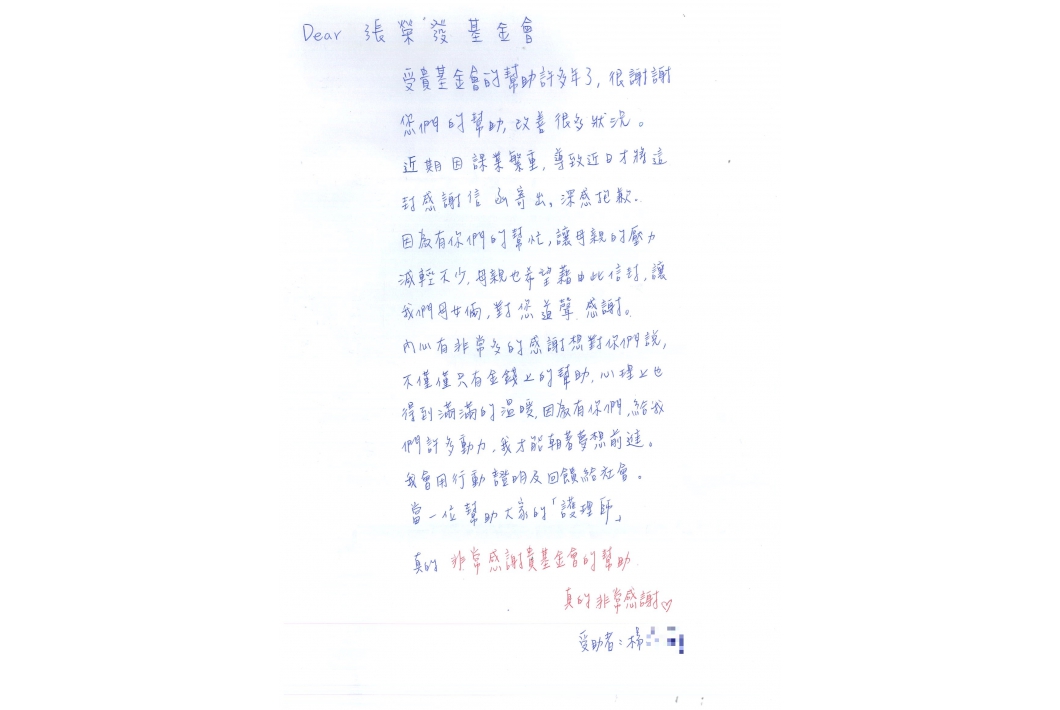 Dear 張榮發基金會
受貴基金會的幫助許多年了,很謝謝
您們的幫助,改善很多狀況。
近期因課業繁重,導致近日才將這
封感謝信函寄出,深感抱歉.
因為有你們的幫忙,讓母親的壓力
減輕不少,母親也希望藉由此信封,讓
我們母女倆,對您道聲感謝。
內心有非常多的感謝想對你們說,
不僅僅只有金錢上的幫助,心理上也
得到滿滿的溫暖,因為有你們,給我
們許多動力,我才能朝著夢想前進。
我會用行動證明及回饋給社會。
當一位幫助大家的「護理師」
真的 非常感謝貴基金會的幫助
真的非常感謝♡
受助者:楊